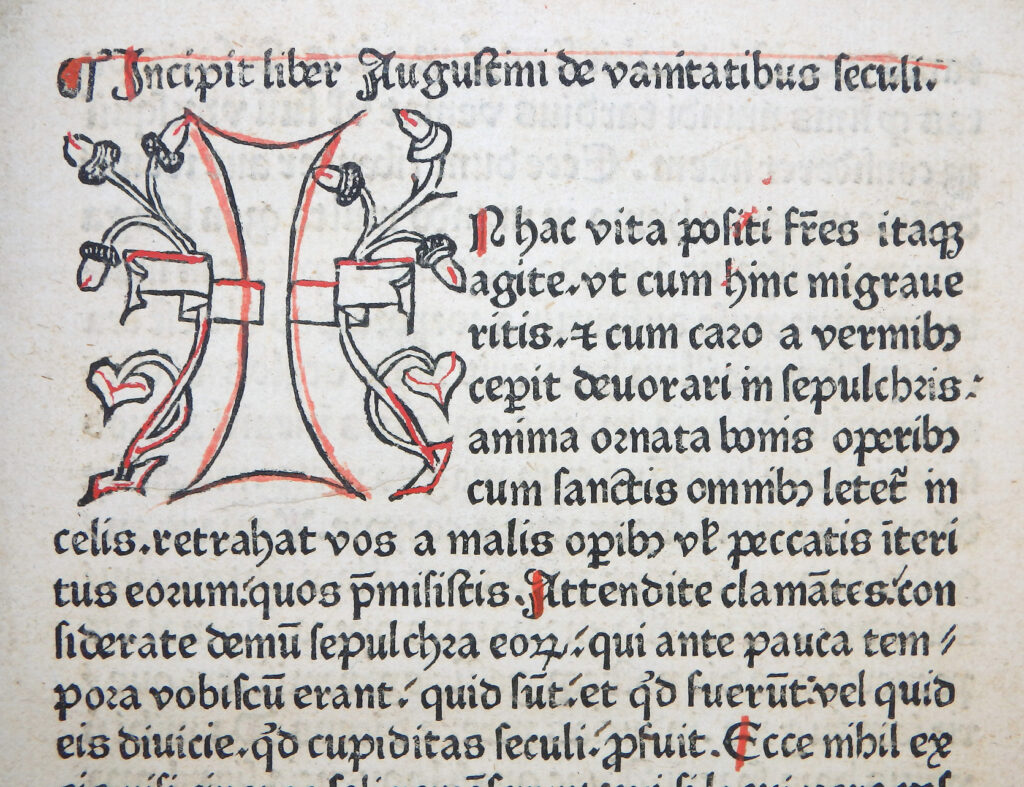 ¶ Incipit liber Augustini de vanitatibus seculi.
IN hac vita positi fr̄es itaqꝫ
agite. vt cum hinc migraue
ritis. ⁊ cum caro a vermibꝫ
ceꝑit deuorari in sepulchris:
anima ornata bonis operibꝫ
cum sanctis omnibꝫ letet᷑ in
celis. retrahat vos a malis oꝑibꝫ vl̓ peccatis īteri
tus eorum: quos p̄misistis. Attendite clamātes: con
siderate demū sepulchra eoꝝ: qui ante pauca tem⸗
pora vobiscū erant: quid sūt: et qͦd fuerūt: vel quid
eis diuicie. qͦd cupiditas seculi: ꝓfuit. Ecce nihil ex